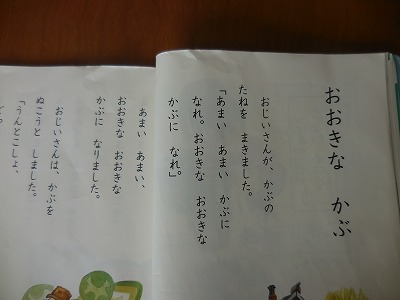 おおきな　かぶ
おじいさんが、かぶの
たねを　まきました。
「あまい　あまい　かぶに
なれ。おおきな　おおきな
かぶに　なれ」。
あまい　あまい、
おおきな　おおきな
かぶに　なりました。
おじいさんは、かぶを
ぬこうと　しました。
「うんとこしょ、